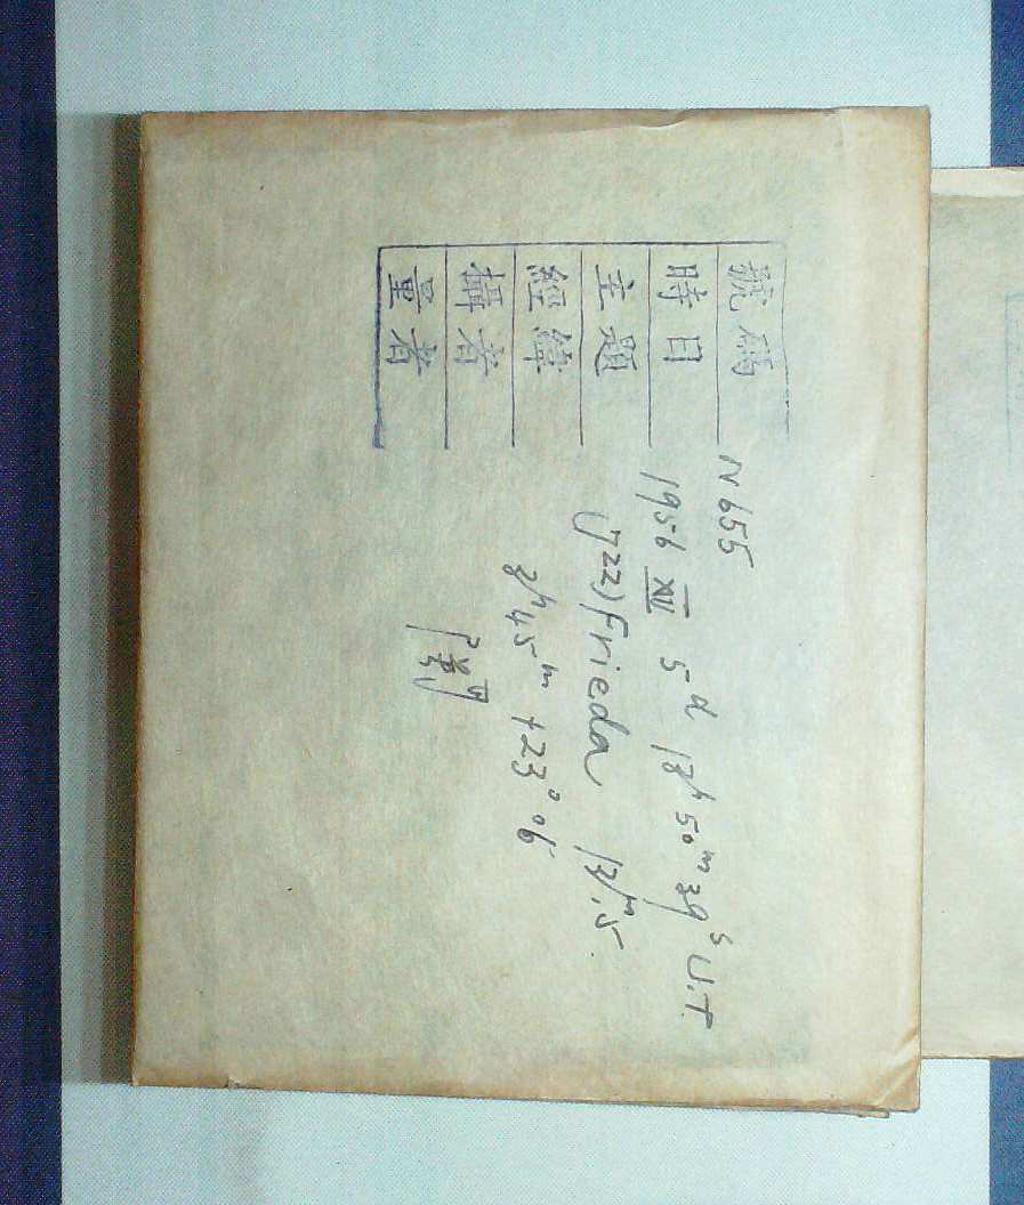 號碼 N655
時日 1956 XII 5d 13h 50m 39s U.T
主題 (722) Frieda 13m.5
經緯 3h 45m +23° 06'
攝者
量者